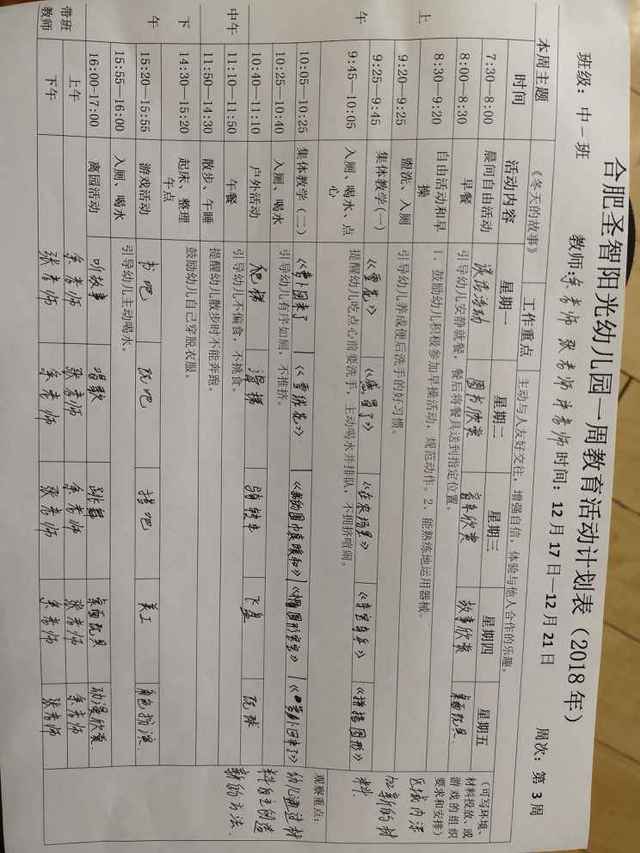 合肥圣智阳光幼儿园一周教育活动计划表（2018 年）
班级：中一班 教师： 老师 张老师 老师 时间：12 月 17 日—12 月 21 日 周次：第 3 周
本周主题 《冬天的故事》 工作重点 主动与人友好交往，增强自信，体验与他人合作的乐趣。
时间 活动内容 星期一 星期二 星期三 星期四 星期五 （可写环境、材料投放、或游戏的组织要求和安排）
上午
7:30—8:00 晨间自由活动 活动 图书欣赏 音乐欣赏 故事欣赏 桌面玩具
8:00—8:30 早餐 引导幼儿安静就餐，餐后将餐具送到指定位置。
8:30—9:20 自由活动和早操 1、鼓励幼儿积极参加早操活动，规范动作。2、能熟练地运用器械。
区域内添加新的材料.
9:20—9:25 盥洗、入厕 引导幼儿养成便后洗手的好习惯。
9:25—9:45 集体教学(一) 《雪花》 《感冒了》 《在农场里》 《拼搭图形》
9:45—10:05 入厕、喝水、点心 提醒幼儿吃点心前要洗手，主动喝水并排队，不拥挤喧闹。
10:05—10:25 集体教学（二） 《萝卜回来了》 《雪绒花》 《 围巾真暖和》
观察重点：
幼儿通过材料自主创造新的方法.
10:25—10:40 入厕、喝水 引导幼儿有序如厕，不推挤。
10:40—11:10 户外活动 滑梯 骑转车 飞盘 玩球
中午
11:10—11:50 午餐 引导幼儿不偏食，不挑食。
11:50—14:30 散步、午睡 提醒幼儿散步时不能奔跑。
下午
14:30—15:20 起床、整理午点 鼓励幼儿自己穿脱衣服。
15:20—15:55 游戏活动 书吧 玩吧 搭吧 美工 角色扮演
15:55—16:00 入厕、喝水 引导幼儿主动喝水。
16:00—17:00 离园活动 听故事 唱歌 跳舞 桌面玩具 动漫欣赏
带班教师 上午 老师 张老师 老师 张老师 老师
下午 张老师 老师 张老师 老师 张老师